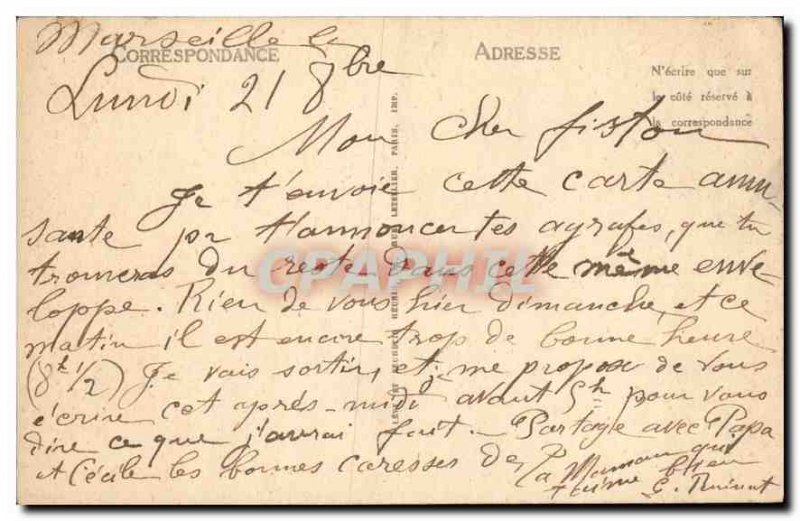 Marseille le
CORRESPONDANCE
ADRESSE
Lundi 21 8bre
N'écrire que sur
le côté réservé à
la correspondance
Mon Cher fiston
Je t'envoie cette carte amu-
sante pr t'annoncer tes agrafes, que tu
trouveras du reste dans cette même enve
loppe. Rien de vous hier dimanche, et ce
matin il est encore trop de bonne heure
(8h 1/2) Je vais sortir, et me propose de vous
écrire cet après-midi avant 5h pour vous
dire ce que j'aurai fait. Partage avec Papa
et Cécile les bonnes caresses de
ta Maman qui
t'aime bien
PARIS, IMP.
CPAPHIL